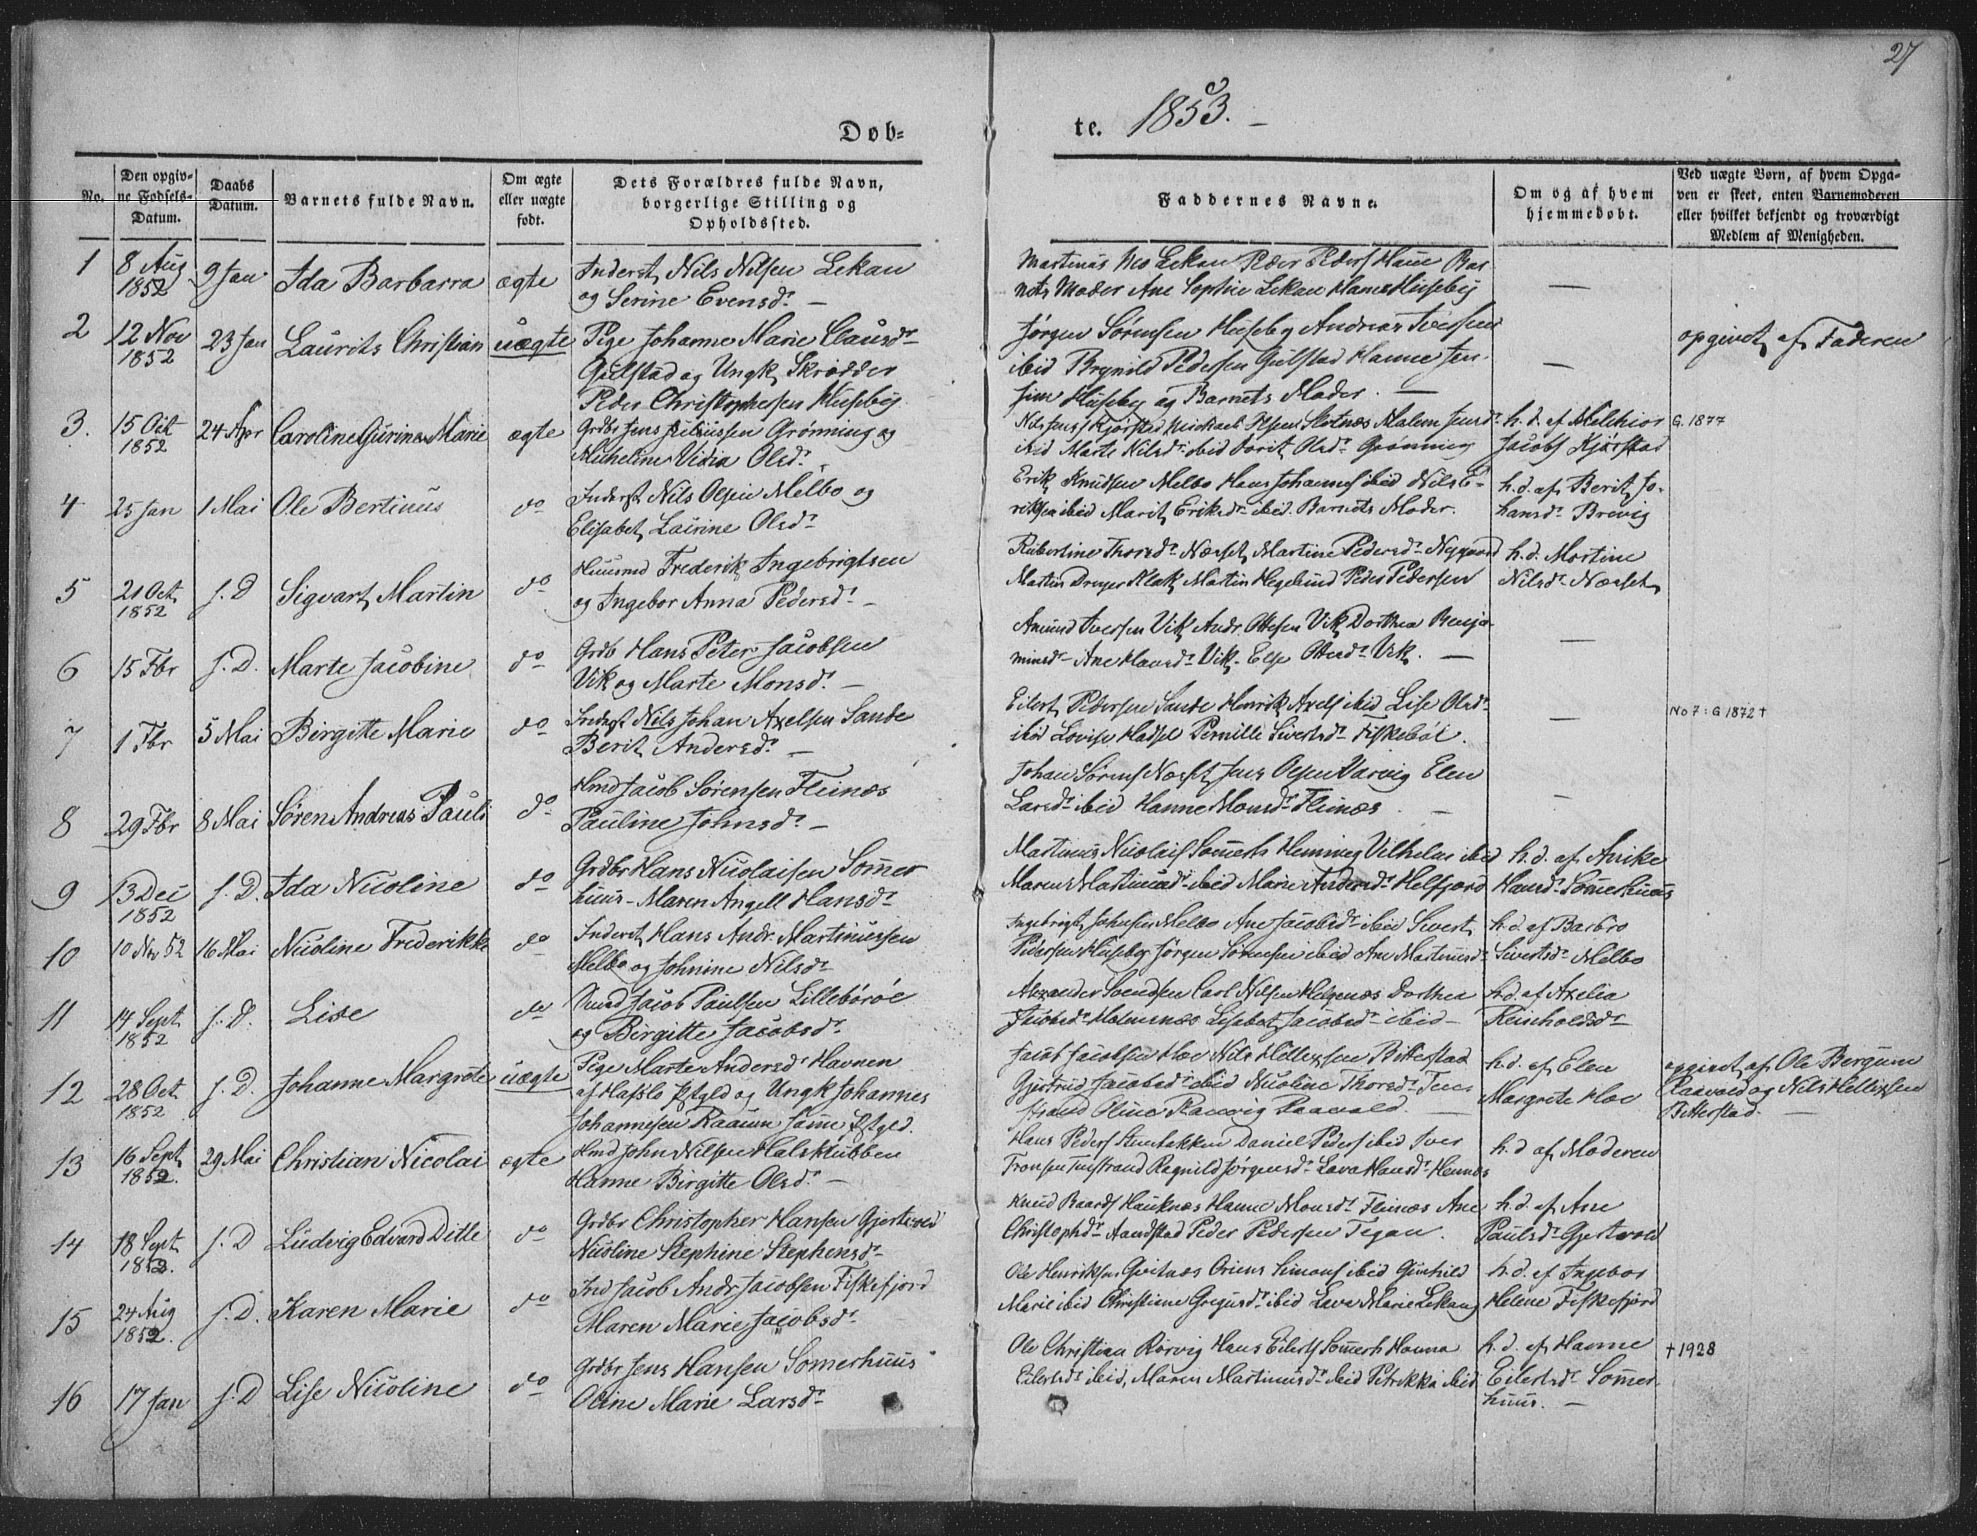 27
Døb=
te. 1853.
No.
Den opgiv=
ne Fødsels=
Datum.
Daabs
Datum.
Barnets fulde Navn.
Om ægte
eller uægte
født.
Dets Forældres fulde Navn,
borgerlige Stilling og
Opholdssted.
Faddernes Navne.
Om og af hvem
hjemmedøbt.
Ved uægte Børn, af hvem Opga=
ven er skeet, enten Barnemoderen
eller hvilket bekjendt og troværdigt
Medlem af Menigheden.
1
8 Aug
1852
9 Jan
Ida Barbarra
ægte
Inderst Nils Nilsen Lekan
og Serine Evensdr. —
Lekan Peder Peders Haue Bar
nets Moder Ane Sophie Lekan Hans Huseby
—
2
12 Nov
1852
23 Jan
Laurits Christian
uægte
Pige Johanne Marie Clausdr
Gulstad og Ungk. Skrædder
Peder Christophersen Huseby
Jørgen Sørensen Huseby Andreas Iversen
ibid Brynild Pedersen Gulstad Hanne Jen
sine Huseby og Barnets Moder. —
—
opgivet af Faderen
3.
15 Oct
1852
24 Apr
Caroline Gurine Marie
ægte
Grdbr Jens Juliussen Grønning og
Olsdr.
Nils Jens Kjørstad Michael Olsen Slotnæs Malene Jensdr
ibid Marte Nilsdr ibid Dorit Olsdr Grønning
h. d. af Melchior
Jacobs Kjørstad
G. 1877
4
25 Jan
1 Mai
Ole Bertinus
do
Inderst Nils Olsen Melbo og
Elisabet Laurine Olsdr
Erik Knudsen Melbo Hans Johannes ibid Nils E-
riksen ibid Marit Eriksdr ibid Barnets Moder.
h. d. af Berit Jo-
hansdr Brevig
5
21 Oct
1852
s. D
Sigvart Martin
do
Huusmd Frederik Ingebrigtsen
og Ingebor Anna Pedersdr. —
Rubertine Thorsdr Næsset, Martine Pedersdr Nygaard
Martin Dreyer Klak Martin Hegelund Peder Pedersen
h. d. Martine
Nilsdr. Næsset
6
15 Fbr
s. D.
Marte Jacobine
do
Grdb Hans Peter Jacobsen
Vik og Marte Monsdr. —
Amund Iversen Vik Andr. Ottesen Vik Dorthea Benja-
minsdr Ane Hansdr Vik. Else Ottesdr Vik. —
—
7
1 Fbr
5 Mai
Birgitte Marie
do
Inderst Nils Johan Axelsen Sande
Berit Andersdr. —
Eilert Pedersen Sande Henrik Axels ibid Lise Olsdr
ibid Lovise Hadsel Pernille Sivertsdr Fiskebøl.
—
No 7: G 1872 †
8
29 Fbr
8 Mai
Søren Andreas Pauli
do
Hmd Jacob Sørensen Fleinæs
Pauline Johnsdr. —
Johan Sørens Næsset Jens Olsen Varvig Elen
Larsdr ibid Hanne Monsdr Fleinæs. —
—
9
13 Dec
1852
s. D.
Ida Nicoline
do
Grdbr Hans Nicolaisen Sommer
huus - Maren Angell Hansdr
Martinus Nicolais Sommerh Henning Vilhelms ibid
Maren Martinusdr ibid Marie Andersdr Helfjord
h. d. af Anike
Hansdr Sommerhuus
10
10 Nov 52
16 Mai
Nicoline Frederikke
do
Inderst Hans Andr. Martinussen
Melbo og Johnine Nilsdr
Ingebrigt Johnsen Melbo Ane Jacobsdr ibid Sivert
Pedersen Huseby Jørgen Sørensen ibid Ane Martinusdr
h. d. af Barbro
Sivertsdr Melbo
11
14 Sept
1852
s. D.
Lise
do
Jacob Paulsen Lillebórøe
og Birgitte Jacobsdr.
Alexander Svendsen Carl Nilsen Helgenæs Dorthea
Jacobsdr Holmenæs Lisabet Jacobsdr ibid —
h. d. af Axelia
Reinholdsdr
12
28 Oct
1852
s. D.
Johanne Margrete
uægte
Pige Marte Andersdr Havnen
af Hafslo Pstgld og Ungk Johannes
Johannesen Raaum samme Pstgld.
Jacob Jacobsen Hoe Nils Hellissen Bitterstad
Gjertrud Jacobsdr ibid Nicoline Thorsdr
strand Oline Ranvig Raavold. —
h. d. af Elen
Margrete Hoe
opgivet af Ole Bergum
Raavold og Nils Hellissen
Bitterstad. —
13
16 Sept
1852.
29 Mai
Christian Nicolai
ægte
Hmd John Nilsen Halsklubben
Hanne Birgitte Olsdr. —
Hans Peders Stenbakken Daniel Peders ibid Iver
Tronsen Ragnild Jørgensdr. Lava Hansdr. Hennes
h. d af Moderen
14
18 Sept
1852.
s. D
Ludvig Edvard Ditle
do
Grdbr Christopher Hansen Gjertvold
Nicoline Stephine Stephensdr
Knud Baards Hauknæs Hanne Monsdr Fleinæs Ane
Christophdr Aandstad Peder Pedersen Tegan.
h. d. af Ane
Paulsdr Gjertvold
15
24 Aug
1852.
s. D.
Karen Marie
do
Ind Jacob Andr Jacobsen Fiskefjord
Maren Marie Jacobsdr
Ole Henriksen Gvitnæs Oriens Simons ibid Gunhild
Marie ibid Christiane Gregusdr ibid Lava Marie Lekang
h. d. af Ingebor
Helene Fiskefjord
16
17 Jan
s. D
Lise Nicoline
do
Grdbr Jens Hansen Somerhuus
Oline Marie Larsdr
Ole Christian Rørvig Hans Eilerts Sommerh Hanna
Eilertsdr ibid, Maren Martinusdr ibid Petrikka ibid
h. d. af Hanne
Eilertsdr Sommer-
huus. —
† 1928